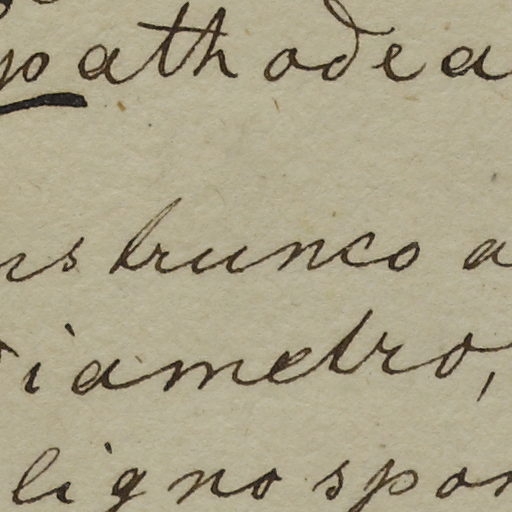 pathodea
us trunco a
diametro,
ligno spon